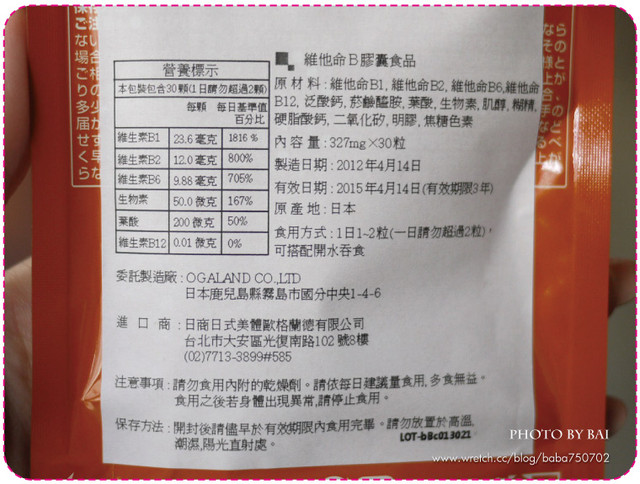 維他命B膠囊食品
營養標示
本包裝包含30顆(1日請勿超過2顆)
每顆 每日基準值
百分比
維生素B1 23.6 毫克 1816 %
維生素B2 12.0 毫克 800%
維生素B6 9.88 毫克 705%
生物素 50.0 微克 167%
葉酸 200 微克 50%
維生素B12 0.01 微克 0%
原 材 料 : 維他命B1, 維他命B2, 維他命B6,維他命
B12, 泛酸鈣, 菸鹼醯胺, 葉酸, 生物素, 肌醇, 糊精,
硬脂酸鈣, 二氧化矽, 明膠, 焦糖色素
內 容 量 : 327mg×30粒
製造日期 : 2012年4月14日
有效日期 : 2015年4月14日(有效期限3年)
原 產 地 : 日本
食用方式 : 1日1~2粒(一日請勿超過2粒),
可搭配開水吞食
委託製造廠 : OGALAND CO.,LTD
日本鹿兒島縣霧島市國分中央1-4-6
進 口 商 : 日商日式美體歐格蘭德有限公司
台北市大安區光復南路102 號8樓
(02)7713-3899#585
注意事項 : 請勿食用內附的乾燥劑。請依每日建議量食用, 多食無益。
食用之後若身體出現異常, 請停止食用。
保存方法 : 開封後請儘早於有效期限內食用完畢。請勿放置於高溫,
潮濕, 陽光直射處。
LOT-bBc013021
PHOTO BY BAI
www.wretch.cc/blog/baba750702